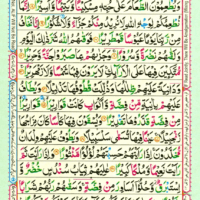 وَيُطْعِمُونَ الطَّعَامَ عَلٰى حُبِّهٖ مِسْكِيْنًا وَّيَتِيْمًا وَّاَسِيْرًا اِنَّمَا
نُطْعِمُكُمْ لِوَجْهِ اللّٰهِ لَا نُرِيْدُ مِنْكُمْ جَزَآءً وَّلَا شُكُوْرًا اِنَّا نَخَافُ
مِنْ رَّبِّنَا يَوْمًا عَبُوْسًا قَمْطَرِيْرًا فَوَقٰىهُمُ اللّٰهُ شَرَّ ذٰلِكَ الْيَوْمِ
وَلَقّٰىهُمْ نَضْرَةً وَّسُرُوْرًا وَجَزٰىهُمْ بِمَا صَبَرُوْا جَنَّةً وَّحَرِيْرًا
مُّتَّكِئِيْنَ فِيْهَا عَلَى الْاَرَآئِكِ لَا يَرَوْنَ فِيْهَا شَمْسًا وَّلَا زَمْهَرِيْرًا
وَدَانِيَةً عَلَيْهِمْ ظِلٰلُهَا وَذُلِّلَتْ قُطُوْفُهَا تَذْلِيْلًا وَيُطَافُ
عَلَيْهِمْ بِاٰنِيَةٍ مِّنْ فِضَّةٍ وَّاَكْوَابٍ كَانَتْ قَوَارِيْرَا قَوَارِيْرَا
مِنْ فِضَّةٍ قَدَّرُوْهَا تَقْدِيْرًا وَيُسْقَوْنَ فِيْهَا كَاْسًا كَانَ مِزَاجُهَا
زَنْجَبِيْلًا عَيْنًا فِيْهَا تُسَمّٰى سَلْسَبِيْلًا وَيَطُوْفُ عَلَيْهِمْ وِلْدَانٌ
مُّخَلَّدُوْنَ اِذَا رَاَيْتَهُمْ حَسِبْتَهُمْ لُؤْلُؤًا مَّنْثُوْرًا وَاِذَا رَاَيْتَ
ثَمَّ رَاَيْتَ نَعِيْمًا وَّمُلْكًا كَبِيْرًا عٰلِيَهُمْ ثِيَابُ سُنْدُسٍ خُضْرٌ
وَّاِسْتَبْرَقٌ وَّحُلُّوْا اَسَاوِرَ مِنْ فِضَّةٍ وَسَقٰىهُمْ رَبُّهُمْ شَرَابًا